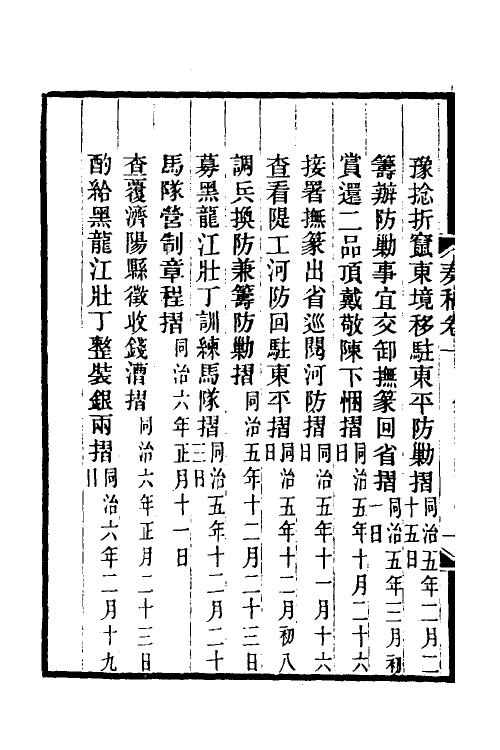 豫捻折竄東境移駐東平防勦摺同治五年二月二十五日
籌辦防勦事宜交卸撫篆回省摺同治五年三月初一日
賞還二品頂戴敬陳下悃摺同治五年十月二十六日
接署撫篆出省巡閱河防摺同治五年十一月十六日
查看隄工河防回駐東平摺同治五年十二月初八日
調兵換防兼籌防勦摺同治五年十二月二十三日
募黑龍江壯丁訓練馬隊摺同治五年十二月二十三日
馬隊營制章程摺同治六年正月十一日
查覆濟陽縣徵收錢漕摺同治六年正月二十三日
酌給黑龍江壯丁整裝銀兩摺同治六年二月十九日
奏稿卷一